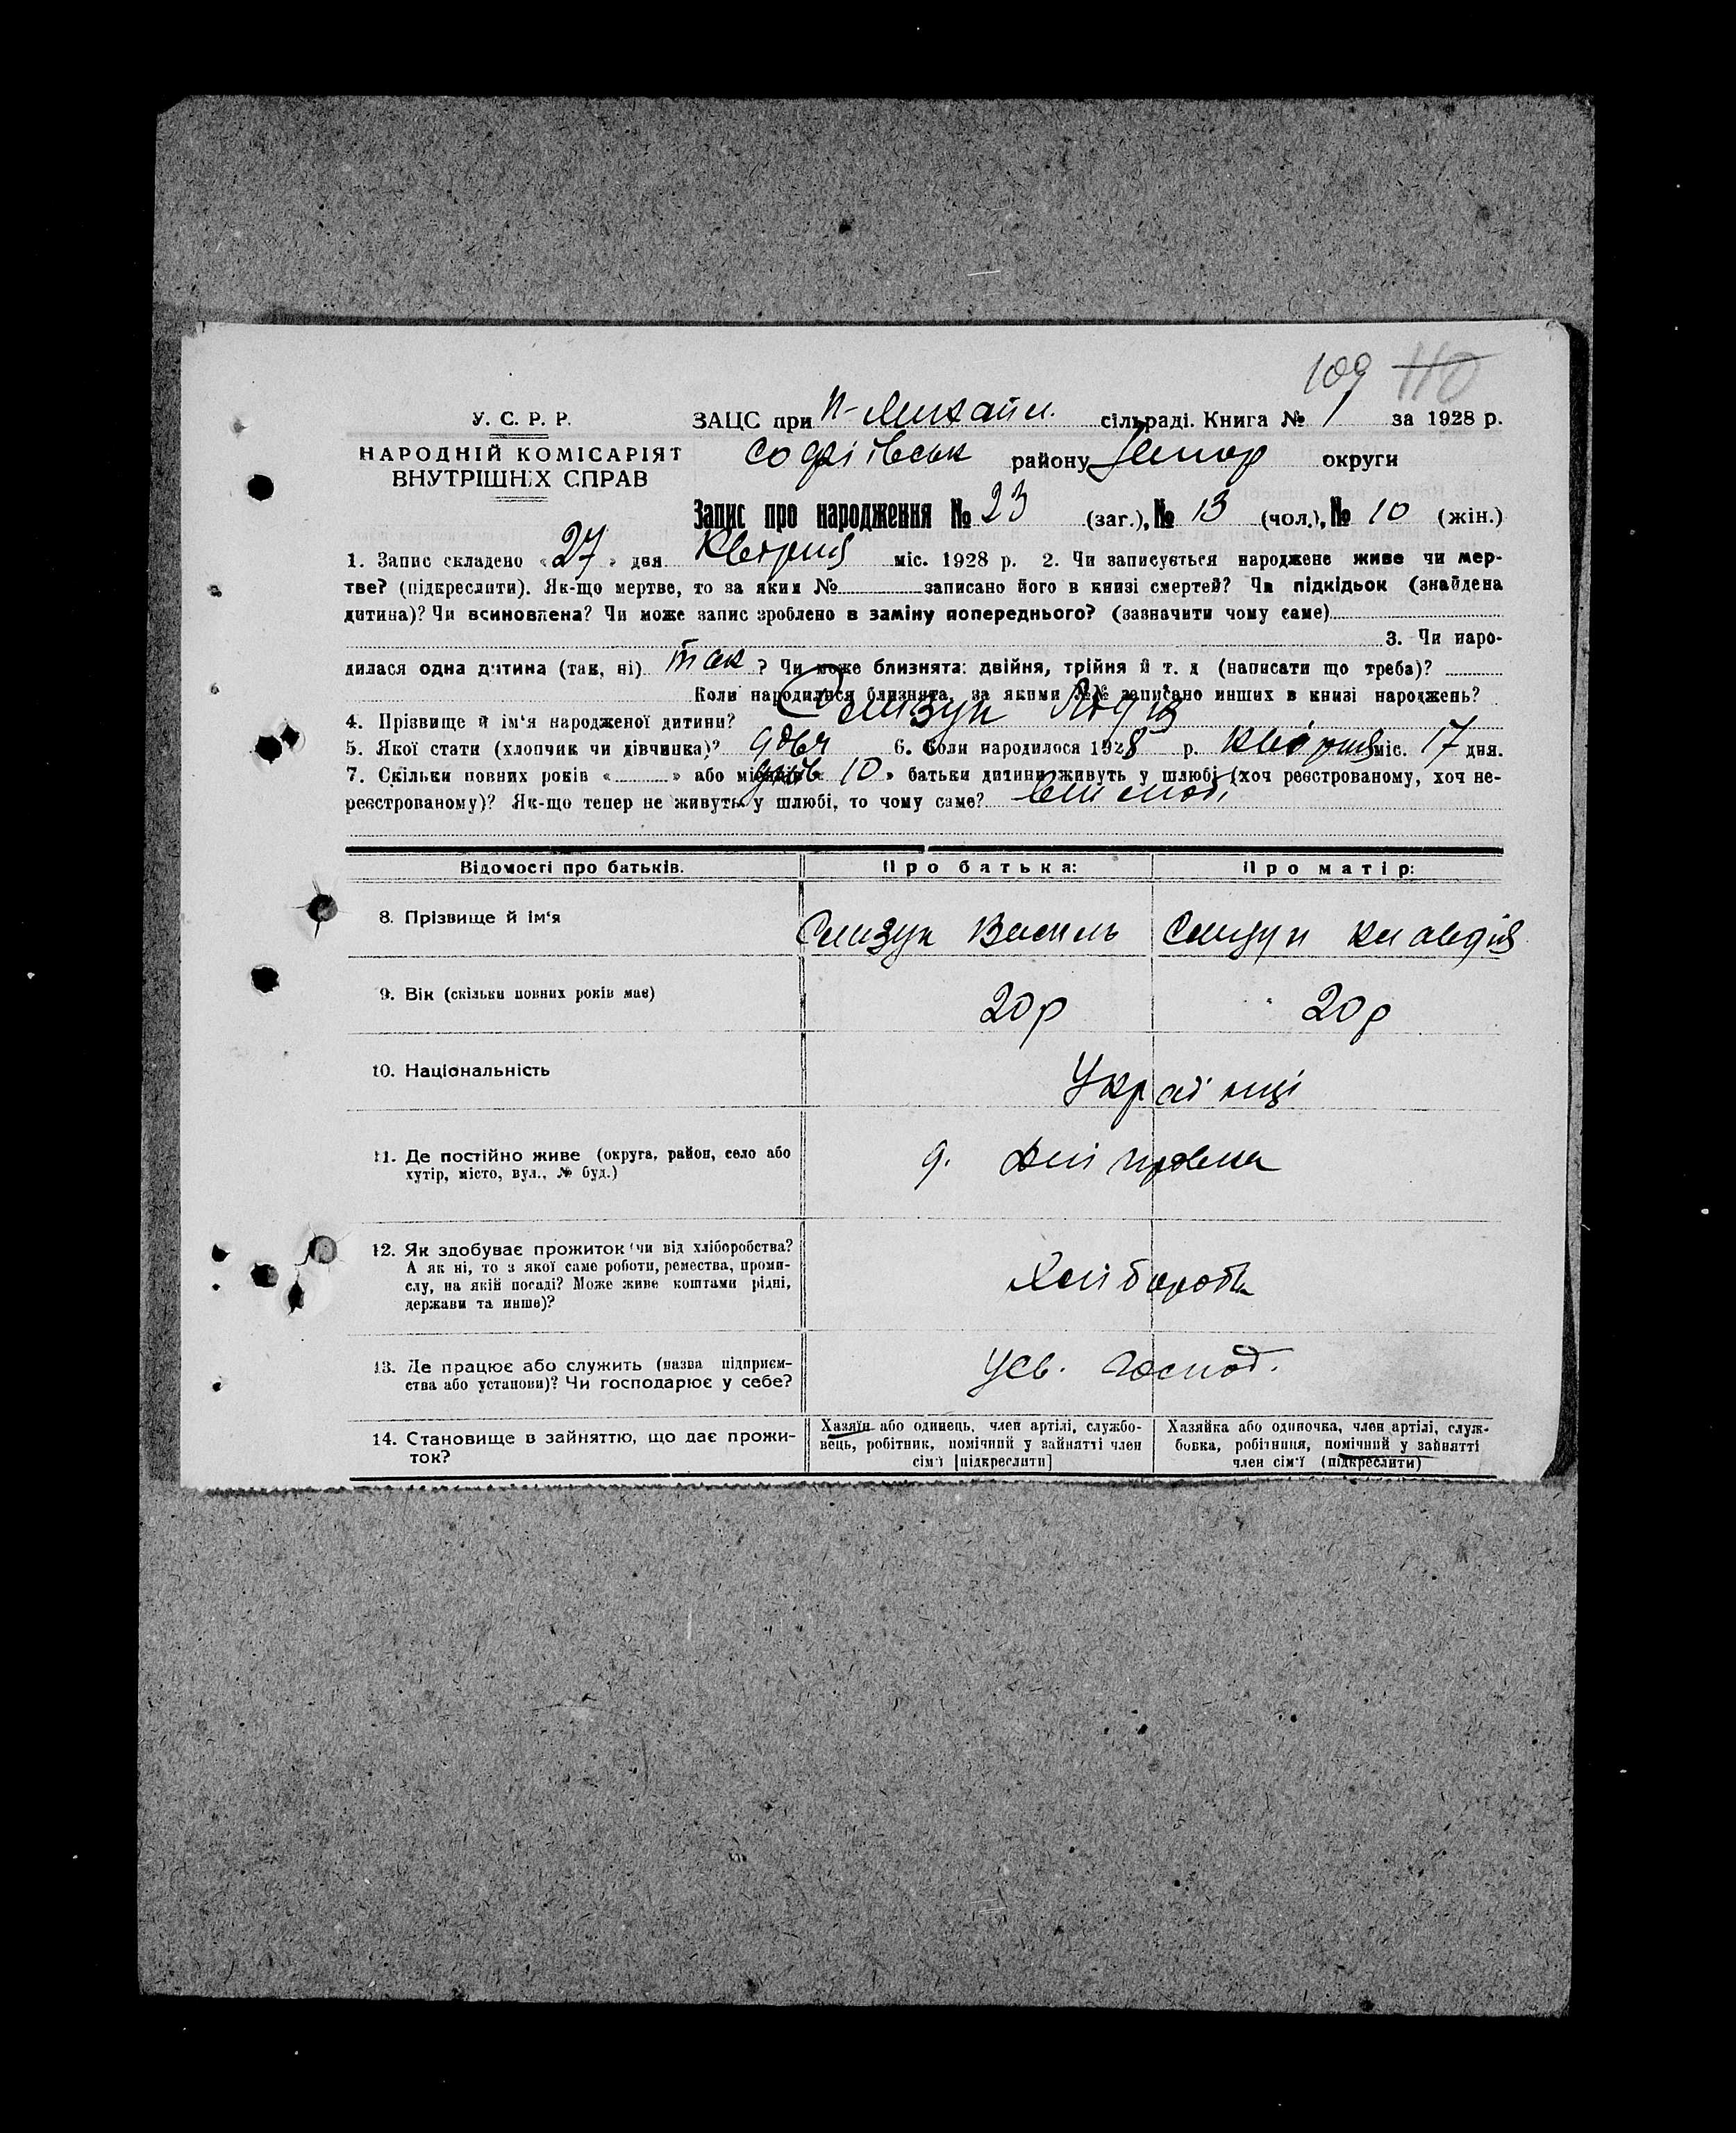 109 110
У. С. Р. Р.
НАРОДНІЙ КОМІСАРІЯТ
ВНУТРІШНІХ СПРАВ
ЗАЦС при Н-Михайл. сільраді. Книга № 1 за 1928 р.
Софіївськ району округи
Запис про народження № 23 (заг.), № 13 (чол.), № 10 (жін.)
1. Запис складено «27» дня Квітня міс. 1928 р. 2. Чи записується народжене живе чи мер-
тве? (підкреслити). Як-що мертве, то за яким № записано його в книзі смертей? Чи підкідьок (знайдена
дитина)? Чи всиновлена? Чи може запис зроблено в заміну попереднього? (зазначити чому саме)
3. Чи наро-
дилася одна дитина (так, ні) так ? Чи може близнята: двійня, трійня й т. д (написати що треба)?
Коли народилися близнята, за якими №№ записано инших в книзі народжень?
4. Прізвище й ім‘я народженої дитини? Слизук Лідія
5. Якої статі (хлопчик чи дівчинка)? 6. Коли народилося 1928 р. Квітня міс. 17 дня.
7. Скільки повних років « » або місяців « 10 » батьки дитини живуть у шлюбі (хоч реєстрованому, хоч не-
реєстрованому)? Як-що тепер не живуть у шлюбі, то чому саме?
Відомості про батьків. Про батька: Про матір:
8. Прізвище й ім‘я Слизук Василь Слизук Клавдія
9. Вік (скільки повних років має) 20 р 20 р
10. Національність Українці
11. Де постійно живе (округа, район, село або
хутір, місто, вул., № буд.)
12. Як здобуває прожиток (чи від хліборобства?
А як ні, то з якої саме роботи, ремества, проми-
слу, на якій посаді? Може живе коштами рідні,
держави та инше)?
Хлібороби
13. Де працює або служить (назва підприєм-
ства або установи)? Чи господарює у себе?
У св. господ.
14. Становище в зайняттю, що дає прожи-
ток?
Хазяїн або одинець, член артілі, службо-
вець, робітник, помічний у зайнятті член
сім‘ї [підкреслити]
Хазяйка або одиночка, член артілі, служ-
бовка, робітниця, помічний у зайнятті
член сім‘ї (підкреслити)